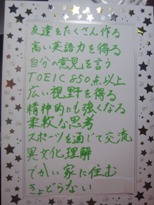 友達をたくさん作る
高い英語力を得る
自分の意見を言う
TOEIC 850点以上
広い視野を得る
精神的にも強くなる
柔軟な思考
スポーツを通じて交流
異文化理解
でかい家に住む
きょどらない